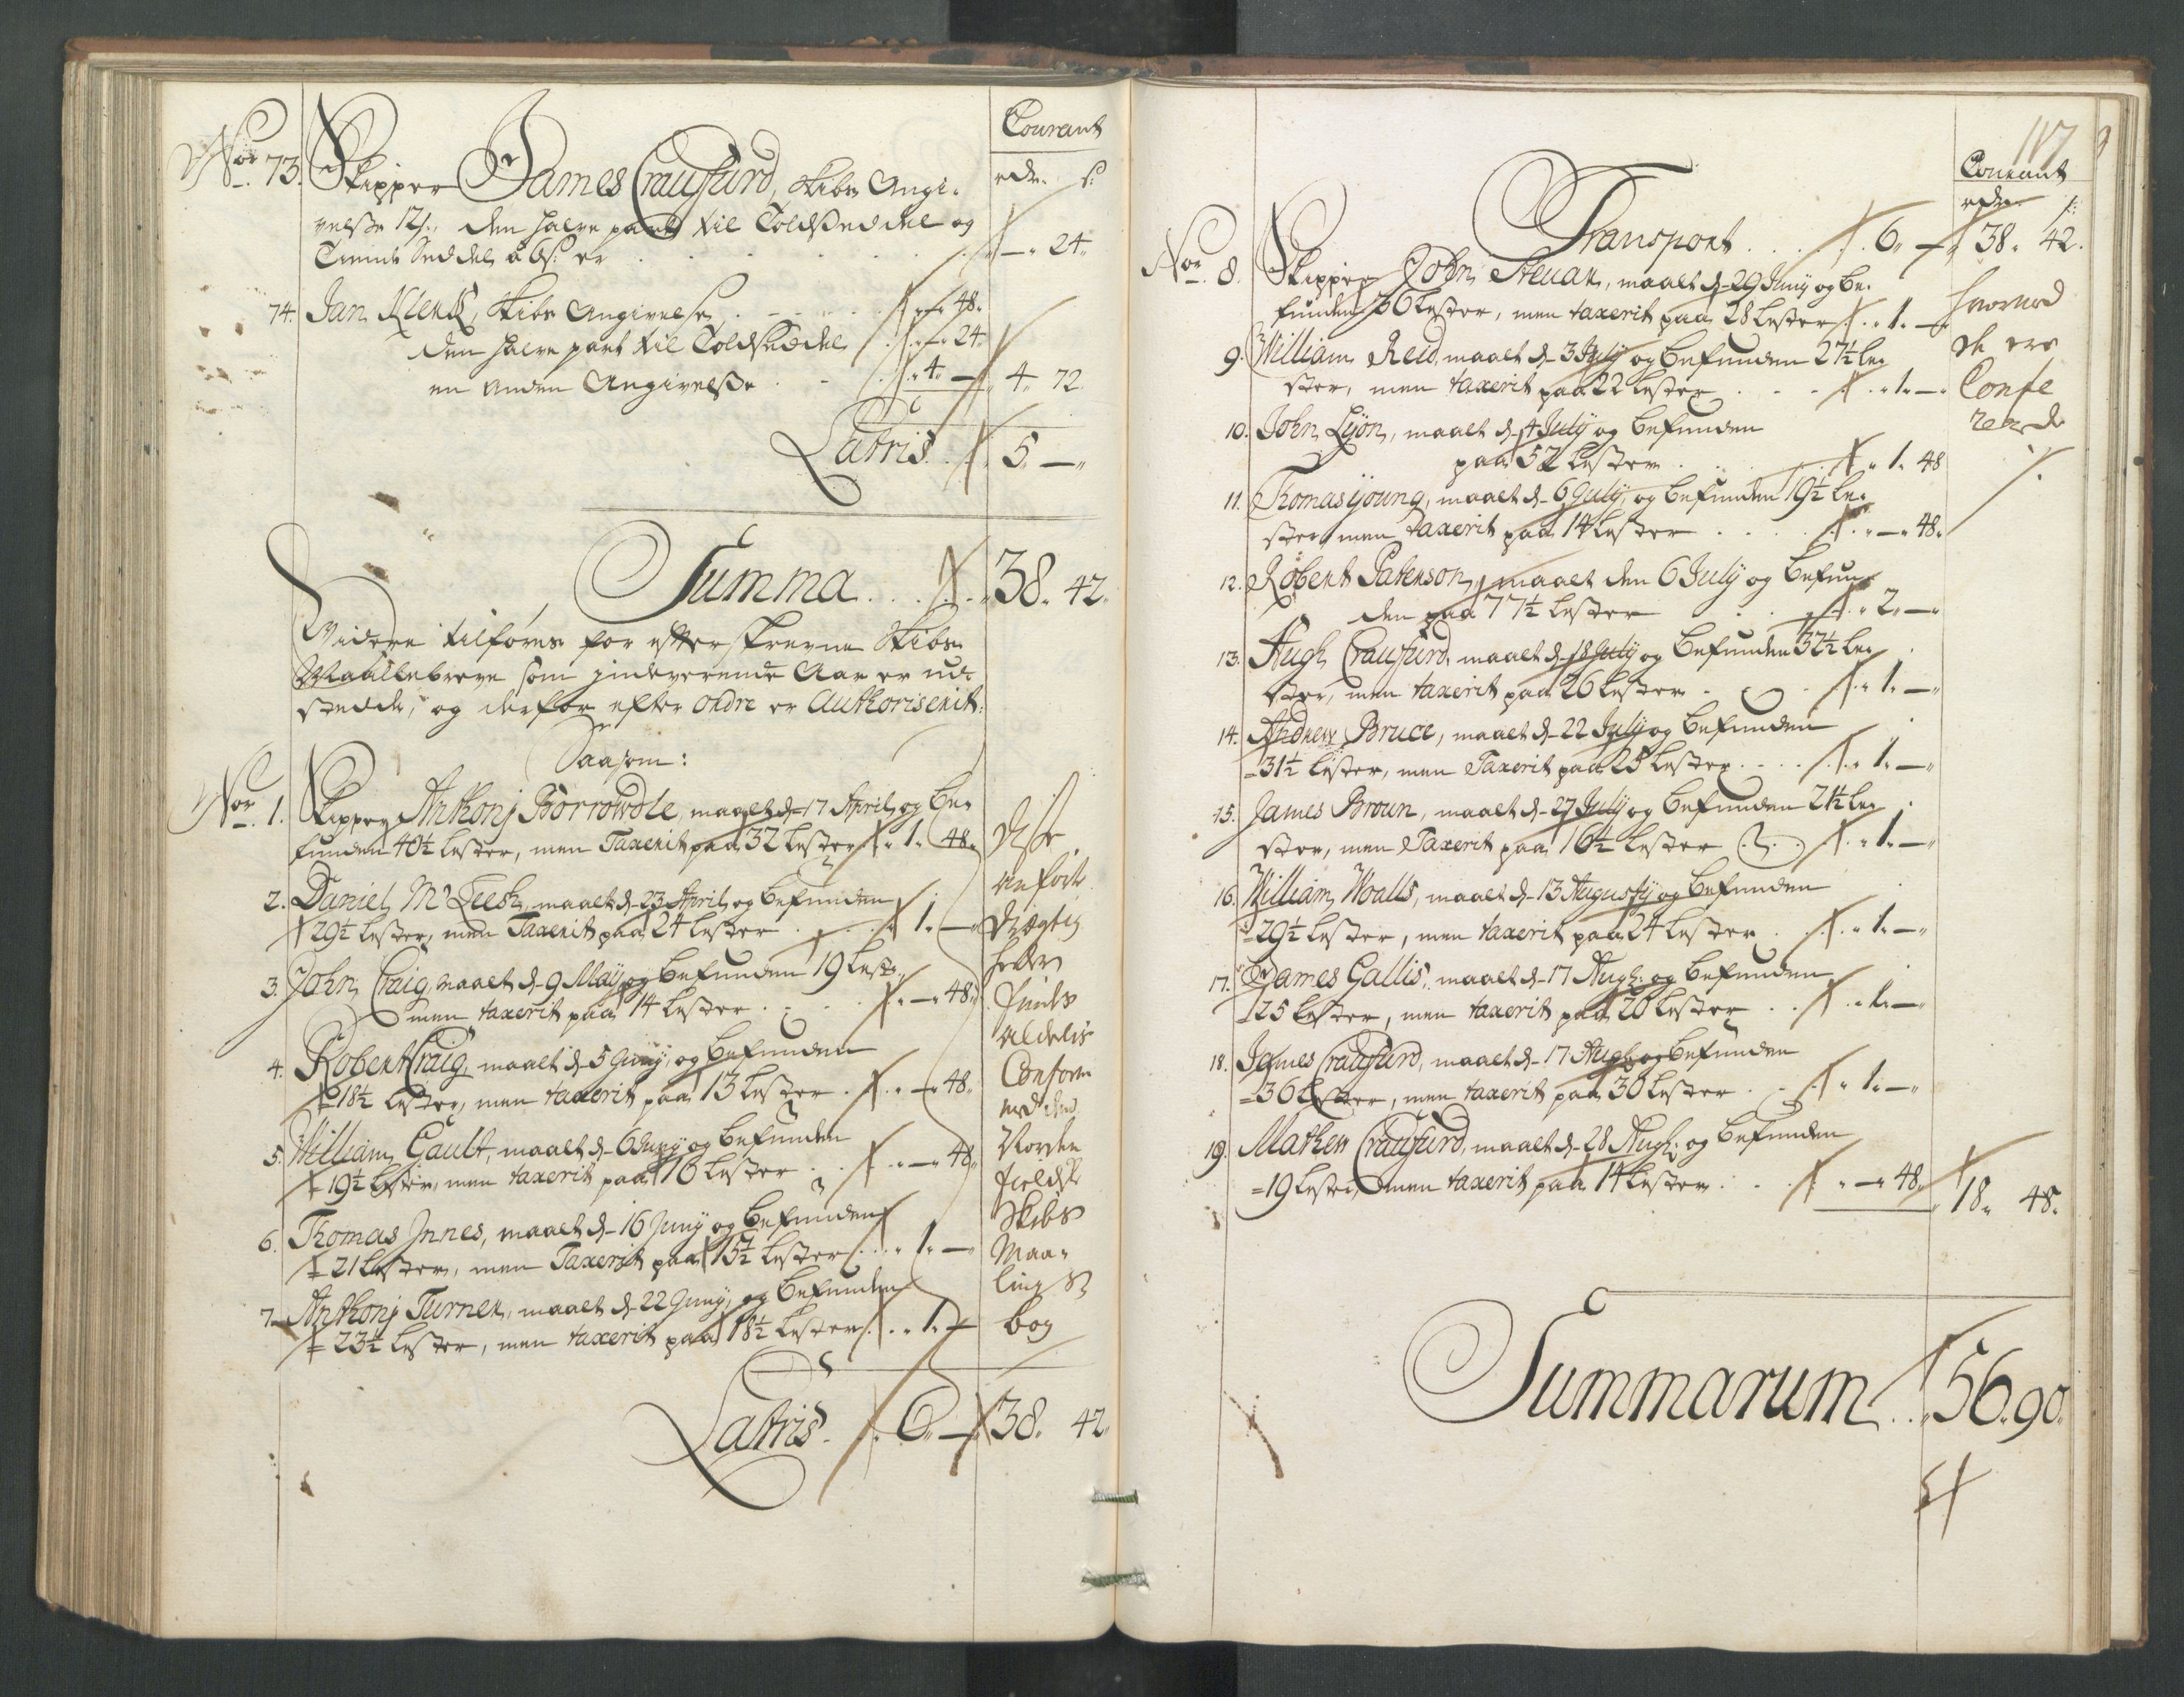 Courant
rdr. s:
Nor. 73. Skipper James Craufurd, Skibs Angi-
velse 12s., den halve part til Toldseddel og
Tiende Seddel á 6s. er — " 24 "
74. Jan Klenk, Skibs Angivelse — " 48 "
den halve part til Toldseddel — " 24 "
en anden Angivelse " 4 " — " 4 " 72
Lateris " 5 " — "
Summa " 38 " 42 "
Widere tilføres for efterskrevne Skibs
Maallebreve som indeverende Aar er ud-
stedde, og derfor efter ordre er Authoriserit:
Saasom:
Nor. 1. Skipper Anthonj Borrowdle, maalt d. 17 April og be-
funden 40½ lester, men Taxerit paa 32 lester " 1 " 48 "
2. Daniel Mc Leesh, maalt d. 23 April og befunden
29½ lester, men Taxerit paa 24 lester " 1 " —
3. John Craig, maalt d. 9 Maÿ og befunden 19 lest.
men taxerit paa 14 lester " — " 48 "
4. Robert Craig, maalt d. 5 Junÿ, og befunden
= 18½ lester, men taxerit paa 13 lester " — " 48 "
5. William Gault, maalt d. 6 Junÿ og befunden
= 19½ lester, men taxerit paa 16 lester " — " 48 "
6. Thomas Jnnes, maalt d. 16 Junÿ og befunden
= 21 lester, men Taxerit paa 15½ lester " 1 " —
7. Anthonj Turner, maalt d. 22 Junÿ, og befunden
= 23½ lester, men taxerit paa 18½ lester " 1 " —
Disse
anførte
Drægtig
heder
findes
aldelis
Conform
med den
Norden
fieldske
Skibs
Maa-
lings
bog
Lateris " 6 " — 38 " 42 "
117
Courant
rdr. s:
Transport " 6 " — " 38 " 42 "
Nor. 8. Skipper John Steuar, maalt d. 29 Junÿ og be-
funden 36 lester, men taxerit paa 28 lester " 1 " —
9. William Reid, maalt d. 3 Julÿ og befunden 27½ le-
ster, men taxerit paa 22 lester " 1 " —
10. John Lÿon, maalt d. 4 Julÿ og befunden
paa 52 lester " 1 " 48
11. Thomas ÿoung, maalt d. 6 Julÿ, og befunden 19½ le-
ster, men taxerit paa 14 lester " — " 48 "
12. Robert Paterson, maalt den 6 Julÿ og befun-
den paa 77½ lester " 2 " — "
13. Hugh Craufurd, maalt d. 18 Julÿ og befunden 32½ le-
ster, men taxerit paa 26 lester " 1 " — "
14. Andrew Bruce, maalt d. 22 Julÿ og befunden
= 31½ lester, men Taxerit paa 25 lester " 1 " — "
15. James Broun, maalt d. 27 Julÿ og befunden 21½ le-
ster, men Taxerit paa 16½ lester " 1 " — "
16. William Walls, maalt d. 13 Augustÿ og befunden
= 29½ lester, men taxerit paa 24 lester " 1 " — "
17. James Gallis, maalt d. 17 Aug: og befunden
= 25 lester, men taxerit paa 20 lester " 1 " — "
18. James Craufurd, maalt d. 17 Aug: og befunden
= 36 lester, men taxerit paa 30 lester " 1 " — "
19. Mathew Craufurd, maalt d. 28 Aug: og befunden
= 19 lester, men taxerit paa 14 lester " — " 48 " 18 " 48 "
hvormed
de ere
Confe
rerede
Summarum " 56 " 90